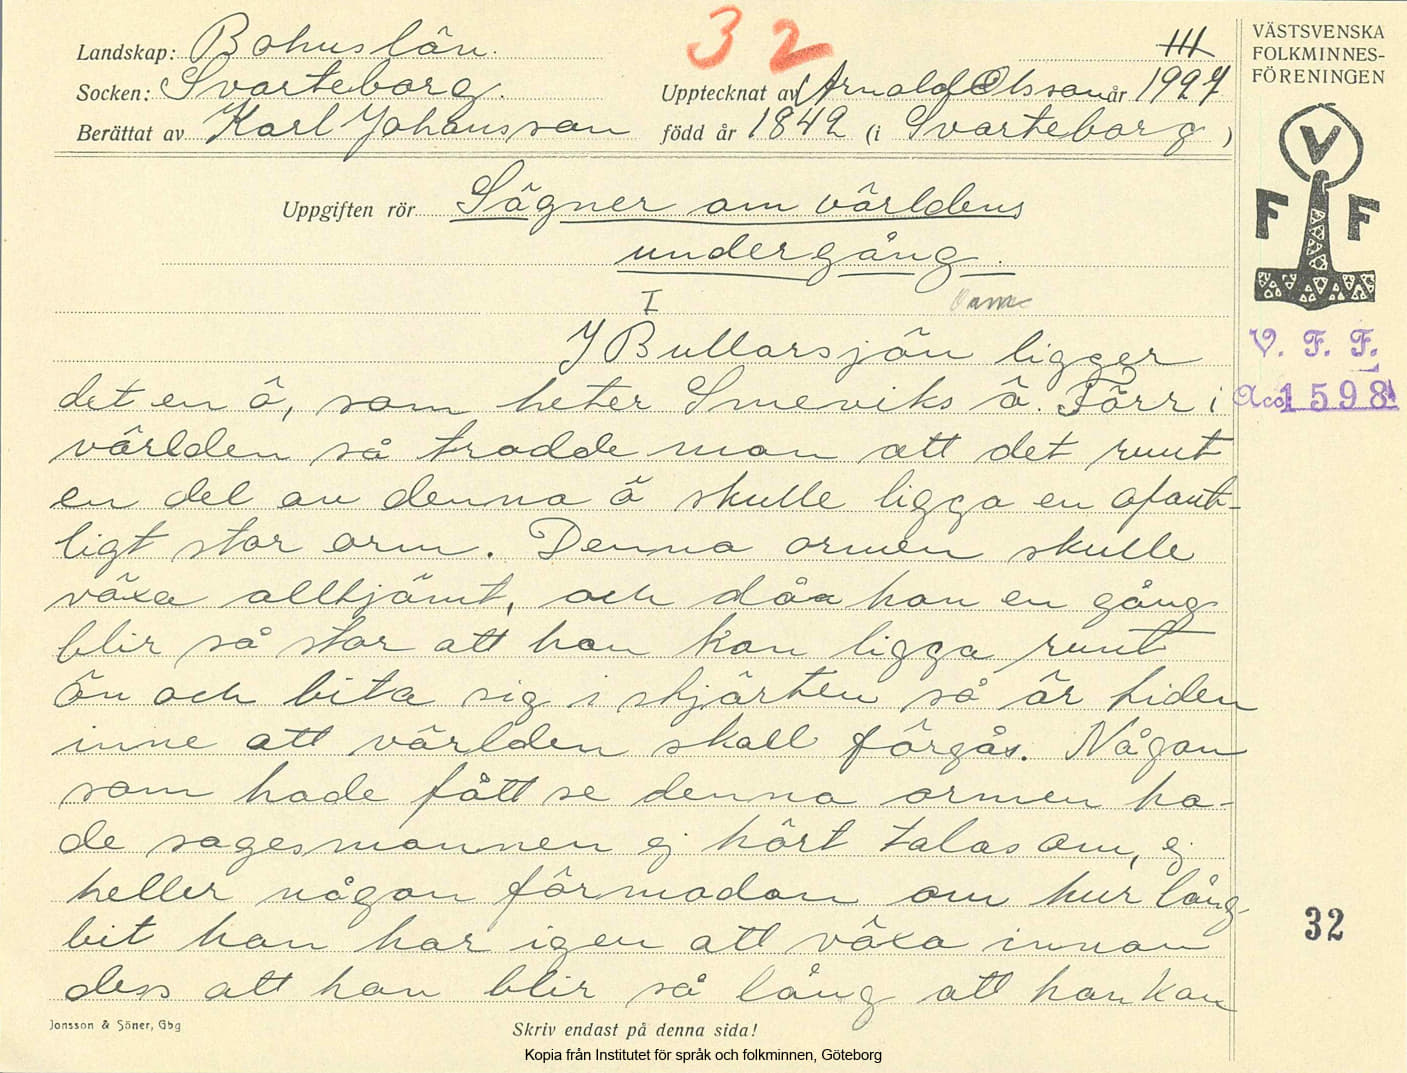 32
III
Landskap: Bohuslän.
Socken: Svarteborg. Upptecknat av Arnold Olsson år 1927
Berättat av Karl Johansson född år 1842 (i Svarteborg )
Uppgiften rör Sägner om världens
undergång.
I
I Bullarsjön ligger
det en ö, som heter Smeviks ö. Förr i
världen så trodde man att det runt
en del av denna ö skulle ligga en ofant-
ligt stor orm. Denna ormen skulle
växa alltjämt, och då han en gång
blir så stor att han kan ligga runt
ön och bita sig i stjärten så är tiden
inne att världen skall förgås. Någon
som hade fått se denna ormen ha-
de sagesmannen ej hört talas om, ej
heller någon förmodan om hur lång
bit han har igen att växa innan
dess att han blir så lång att han kan
Jonsson & Söner, Gbg
Skriv endast på denna sida!
Kopia från Institutet för språk och folkminnen, Göteborg
VÄSTSVENSKA
FOLKMINNES-
FÖRENINGEN
V
F F
V. F. F.
Acc. 1598
32